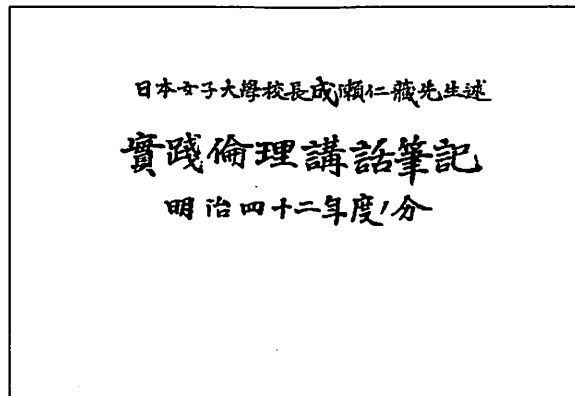 日本女子大學校長成瀬仁藏先生述
實踐倫理講話筆記
明治四十二年度ノ分